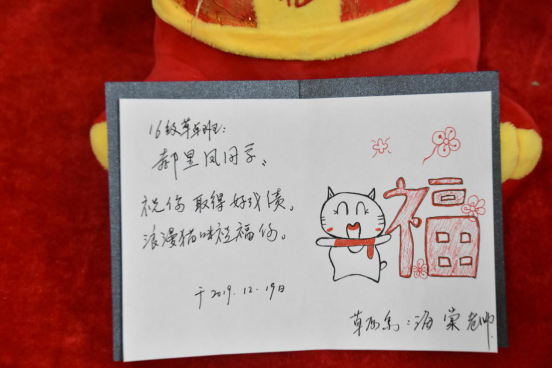 16级草药班:
郝里凤同学、
祝你取得好成绩。
浪漫猫咪祝福你。
于2019.12.19日
福
草药系:海棠老师.